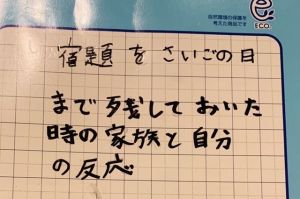 e
ECO.
自然環境の保護を
考えた商品です
宿題をさいごの日
まで残しておいた
時の家族と自分
の反応